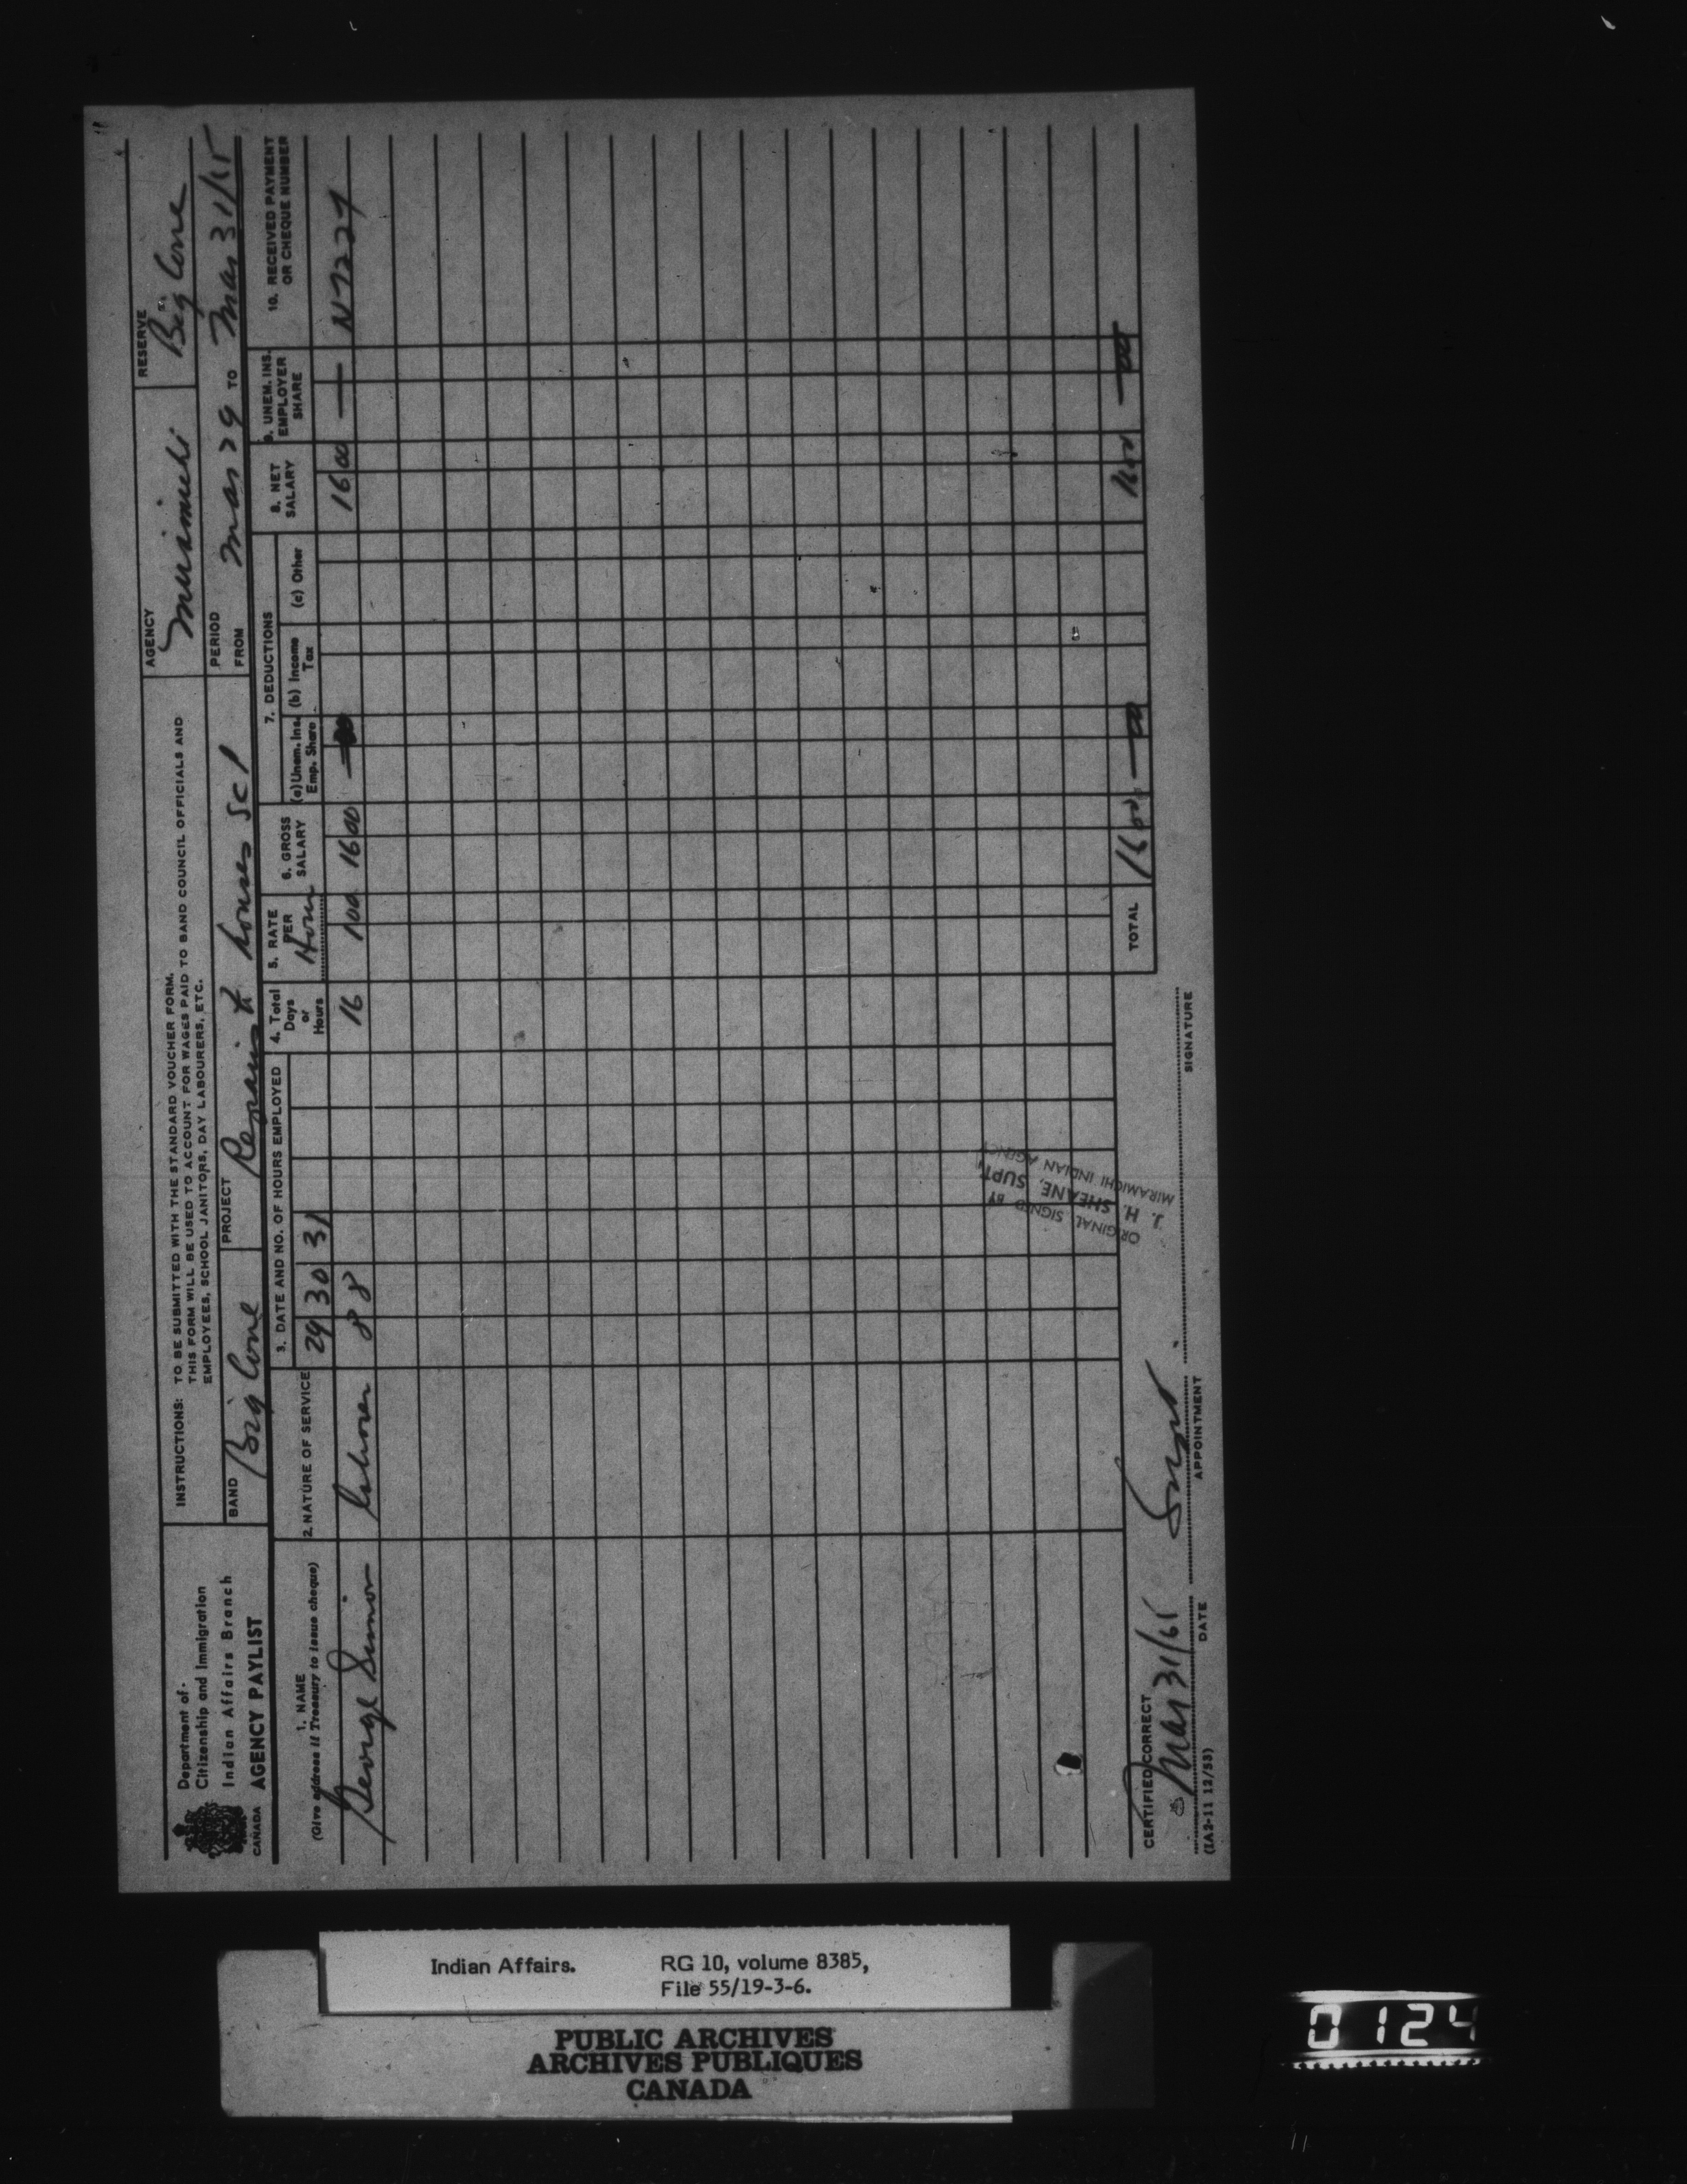 Department of
Citizenship and Immigration
Indian Affairs Branch
CANADA AGENCY PAYLIST
INSTRUCTIONS: TO BE SUBMITTED WITH THE STANDARD VOUCHER FORM.
THIS FORM WILL BE USED TO ACCOUNT FOR WAGES PAID TO BAND COUNCIL OFFICIALS AND
EMPLOYEES, SCHOOL JANITORS, DAY LABOURERS, ETC.
AGENCY Miramichi
RESERVE Big Cove
BAND Big Cove
PROJECT Repairs to houses
PERIOD
FROM Mar 29 TO Mar 31
1. NAME
(Give address if Treasury to issue cheque)
2. NATURE OF SERVICE
3. DATE AND NO. OF HOURS EMPLOYED
29 30 31
4. Total Days or Hours
5. RATE PER Hour
6. GROSS SALARY
7. DEDUCTIONS
(a) Unem. Ins. Emp. Share
(b) Income Tax
(c) Other
8. NET SALARY
9. UNEM. INS. EMPLOYER SHARE
10. RECEIVED PAYMENT OR CHEQUE NUMBER
George Simon 8 8 16 1 00 16 00 16 00
TOTAL 16 00 16 00
ORIGINAL SIGNED BY
J. H. SHEANE, SUPT
MIRAMICHI INDIAN AGENCY
CERTIFIED CORRECT
Mar 31 Supt.
DATE APPOINTMENT SIGNATURE
(IA 2-11 12/53)
Indian Affairs. RG 10, volume 8385,
File 55/19-3-6.
PUBLIC ARCHIVES
ARCHIVES PUBLIQUES
CANADA
0124